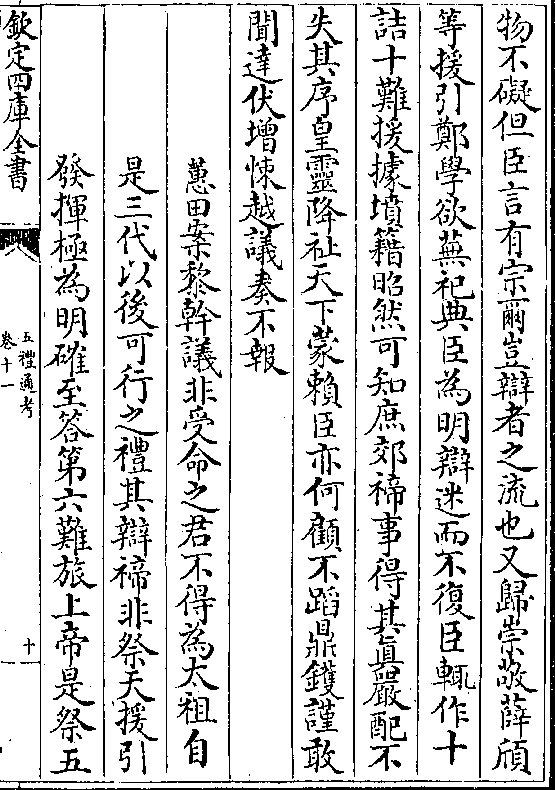 物不礙但臣言有宗爾豈辯者之流也又歸崇敬薛頎
等援引鄭學欲蕪祀典臣為明辯迷而不復臣輒作十
詰十難援據墳籍昭然可知庶郊禘事得其真嚴配不
失其序皇靈降祉天下蒙賴臣亦何顧不蹈鼎鑊謹敢
聞達伏增悚越議奏不報
蕙田案黎幹議非受命之君不得為太祖自
是三代以後可行之禮其辯禘非祭天援引
發揮極為明確至答第六難旅上帝是祭五
欽定四庫全書
五禮通考
卷十一
十